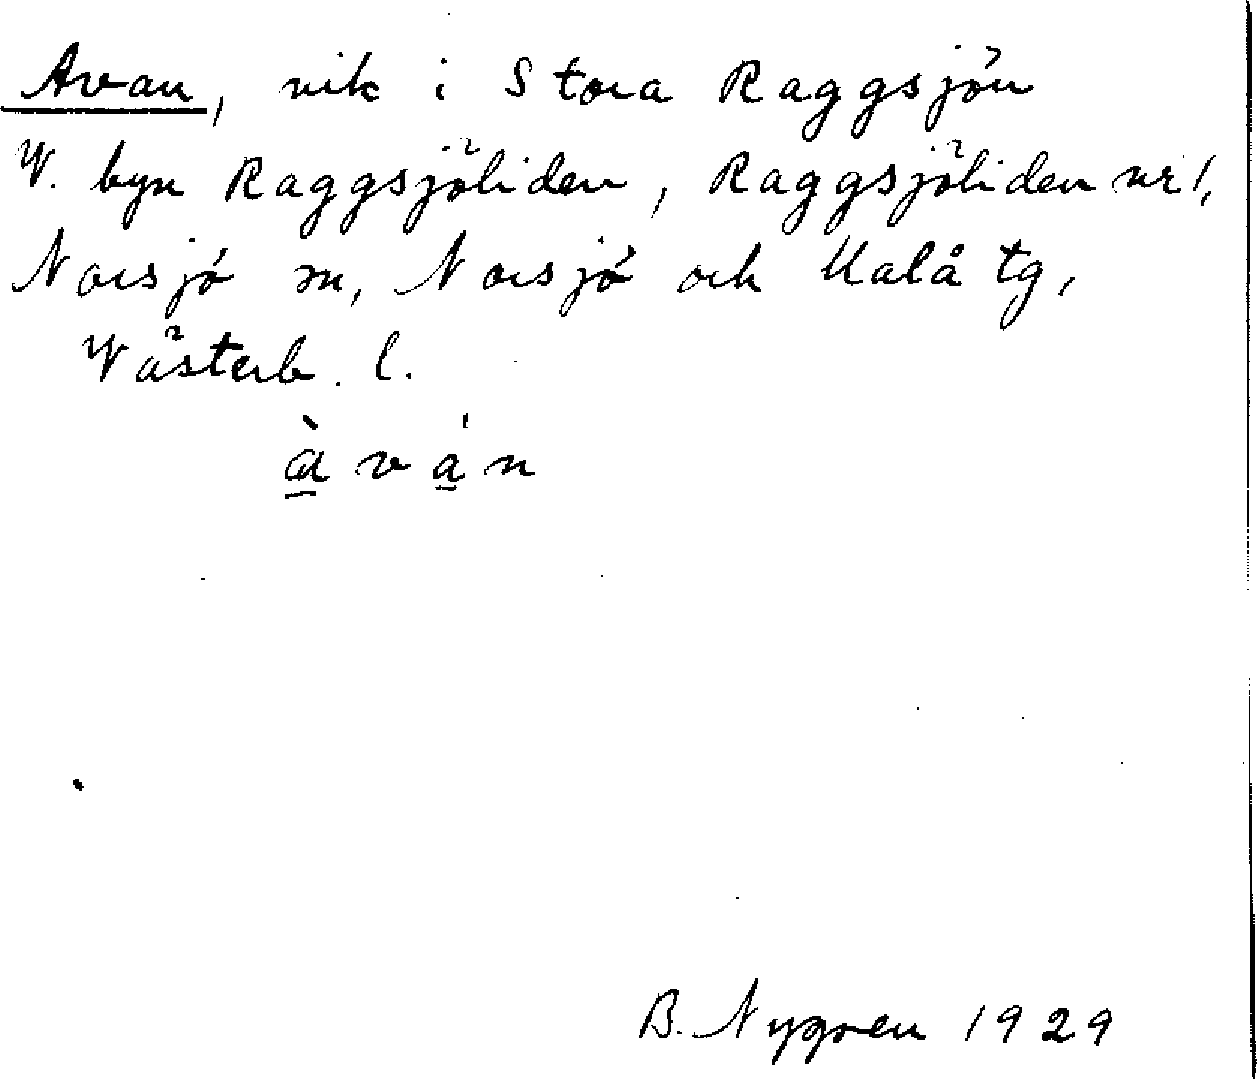 Avan, vik i Stora Raggsjön
V. byn Raggsjöliden, Raggsjöliden nr 1,
Norsjö sn, Norsjö och Malå tg,
Västerb. l.
àván
B. Nygren 1929